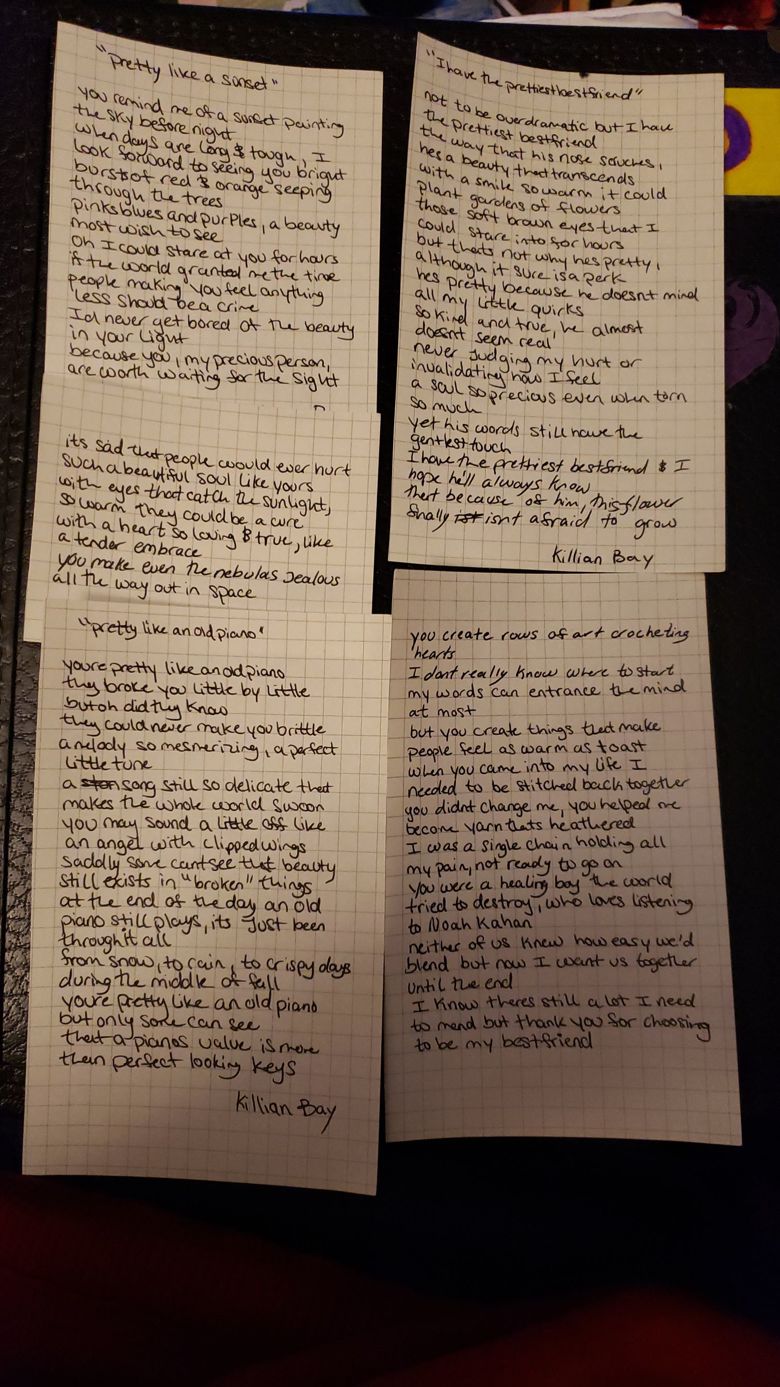 "pretty like a sunset"
you remind me of a sunset painting
the sky before night
when days are long & tough, I
look forward to seeing you bright
bursts of red & orange seeping
through the trees
pinks blues and purples, a beauty
most wish to see
oh I could stare at you for hours
if the world granted me the time
people making you feel anything
less should be a crime
I'd never get bored of the beauty
in your light
because you, my precious person,
are worth waiting for the sight
its sad that people would ever hurt
such a beautiful soul like yours
with eyes that catch the sunlight,
so warm they could be a cure
with a heart so loving & true, like
a tender embrace
you make even the nebulas jealous
all the way out in space
"pretty like an old piano"
youre pretty like an old piano
they broke you little by little
but oh did they know
they could never make you brittle
a melody so mesmerizing, a perfect
little tune
a song still so delicate that
makes the whole world swoon
you may sound a little off like
an angel with clipped wings
saddly some cant see that beauty
still exists in "broken" things
at the end of the day an old
piano still plays, its just been
through it all
from snow, to rain, to crispy days
during the middle of fall
youre pretty like an old piano
but only some can see
that a pianos value is more
than perfect looking keys
Killian Bay
"I have the prettiest bestfriend"
not to be overdramatic but I have
the prettiest bestfriend
the way that his nose scruches,
hes a beauty that transcends
with a smile so warm it could
plant gardens of flowers
those soft brown eyes that I
could stare into for hours
but thats not why hes pretty,
although it sure is a perk
hes pretty because he doesnt mind
all my little quirks
so kind and true, he almost
doesnt seem real
never judging my hurt or
invalidating how I feel
a soul so precious even when torn
so much
yet his words still have the
gentlest touch
I have the prettiest bestfriend & I
hope he'll always know
that because of him, this flower
finally isnt afraid to grow
Killian Bay
you create rows of art crocheting
hearts
I dont really know where to start
my words can entrance the mind
at most
but you create things that make
people feel as warm as toast
when you came into my life I
needed to be stitched back together
you didnt change me, you helped me
become yarn thats heathered
I was a single chain holding all
my pain, not ready to go on
you were a healing boy the world
tried to destroy, who loves listening
to Noah Kahan
neither of us knew how easy we'd
blend but now I want us together
until the end
I know theres still a lot I need
to mend but thank you for choosing
to be my bestfriend